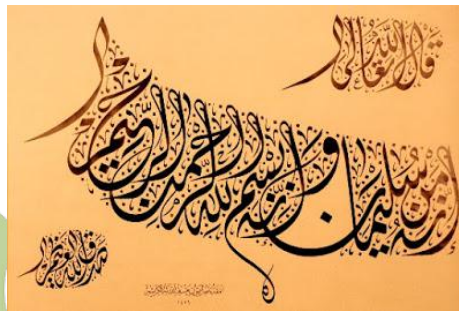 قال الله تعالى
إنه من سليمان وإنه بسم الله الرحمن الرحيم
صدق الله العظيم
١٤٢٩